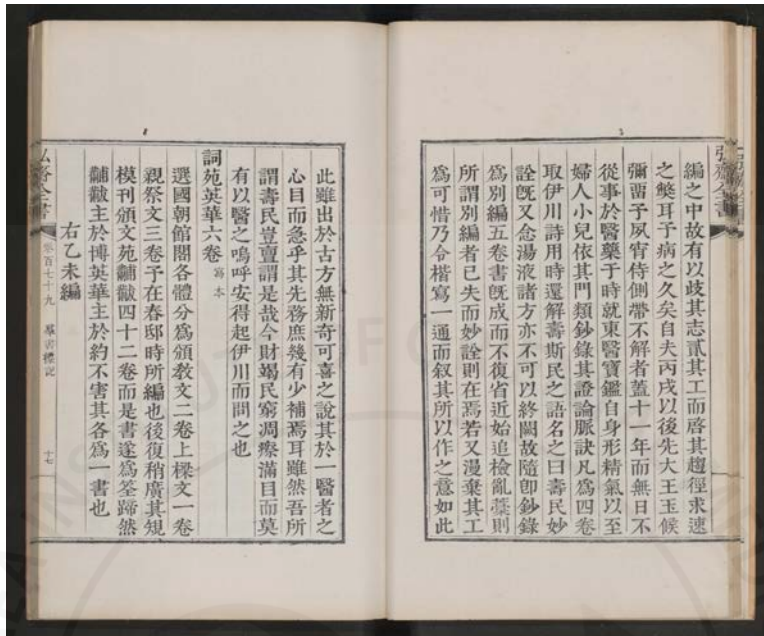 弘齋全書
編之中故有以歧其志貳其工而啓其趨徑求速
之弊耳予病之久矣自夫丙戌以後先大王玉候
彌留予夙宵侍側帶不解者蓋十一年而無日不
從事於醫藥于時就東醫寶鑑自身形精氣以至
婦人小兒依其門類鈔錄其證論脈訣凡爲四卷
取伊川詩用時還解壽斯民之語名之曰壽民妙
詮旣又念湯液諸方亦不可以終闕故隨卽鈔錄
爲別編五卷書旣成而不復省近始追檢亂藁則
所謂別編者已失而妙詮則在焉若又漫棄其工
爲可惜乃令楷寫一通而叙其所以作之意如此
此雖出於古方無新奇可喜之說其於一醫者之
心目而急乎其先務庶幾有少補焉耳雖然吾所
謂壽民豈亶謂是哉今財竭民窮凋瘵滿目而莫
有以醫之嗚呼安得起伊川而問之也
詞苑英華六卷 寫本
選國朝館閣各體分爲頒敎文二卷上樑文一卷
親祭文三卷予在春邸時所編也後復稍廣其䂓
模刊頒文苑黼黻四十二卷而是書遂爲筌蹄然
黼黻主於博英華主於約不害其各爲一書也
右乙未編
弘齋全書 卷百七十九 羣書標記 十七